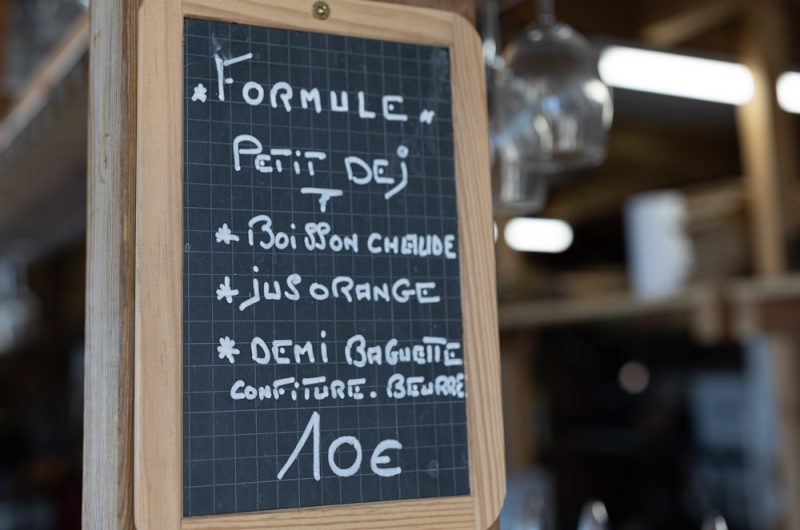 * FORMULE ~
PETIT DEJ
* BOISSON CHAUDE
* JUS ORANGE
* DEMI BAGUETTE
CONFITURE. BEURRE
10€